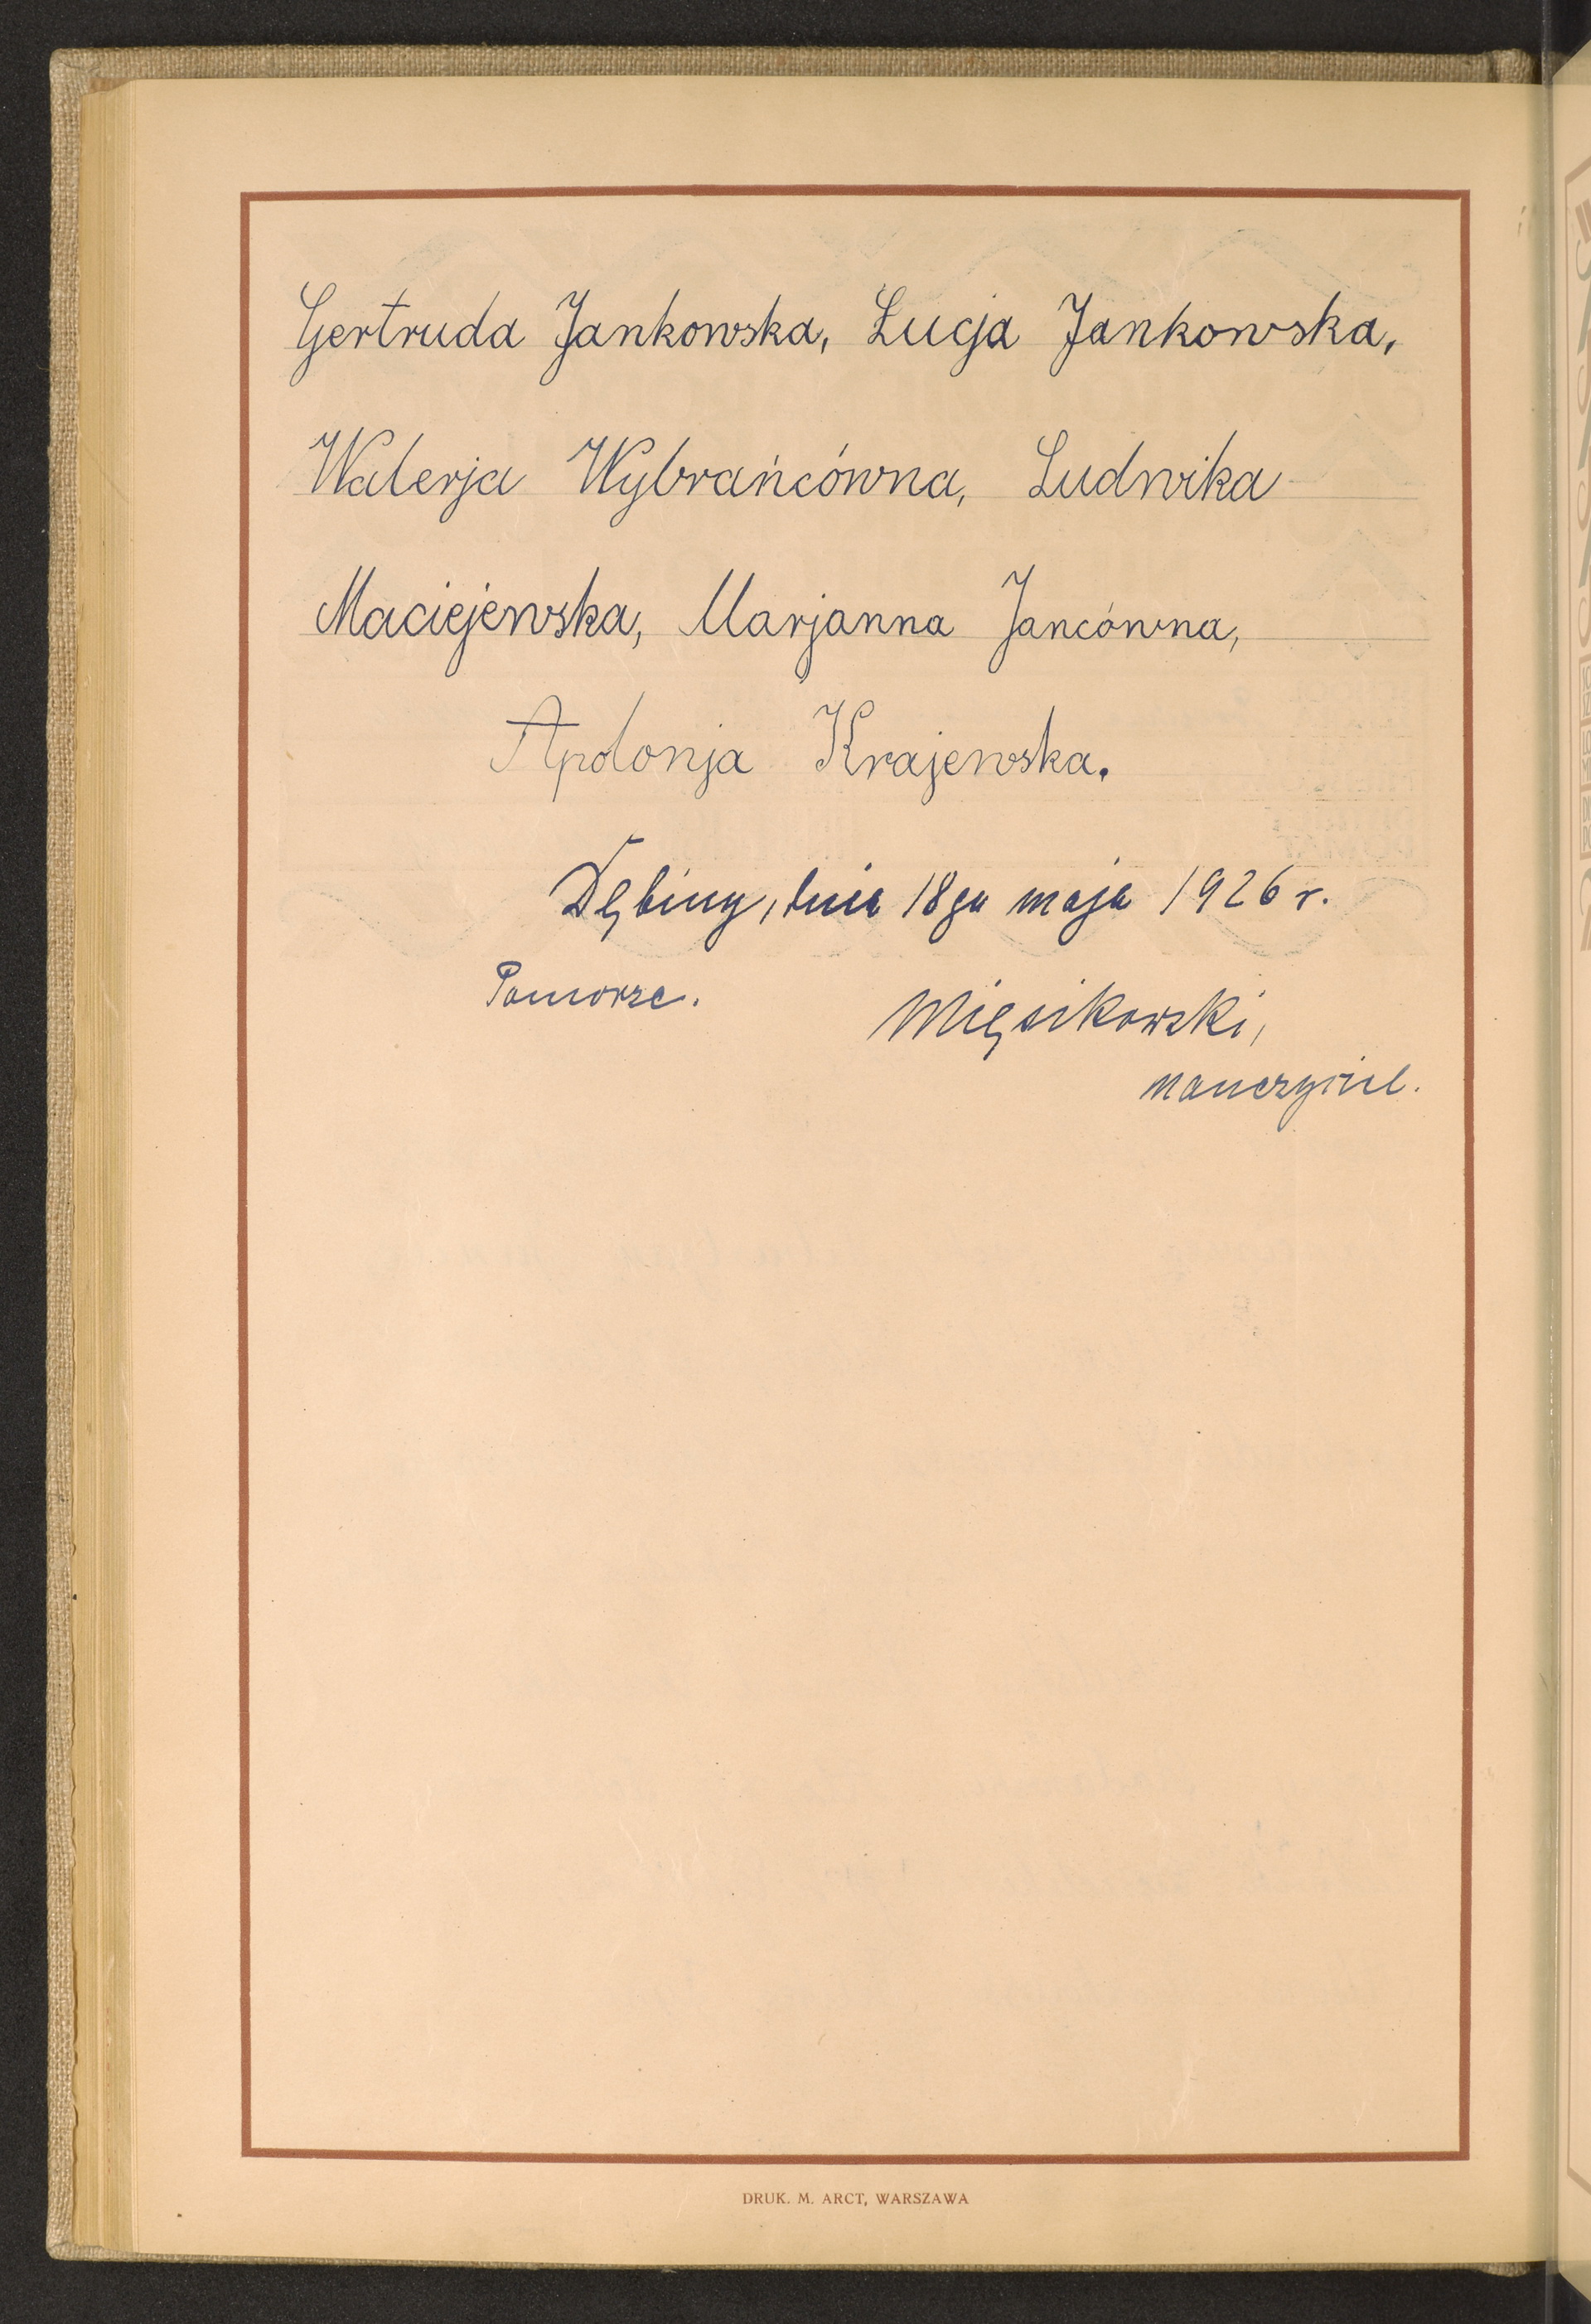 Gertruda Jankowska, Łucja Jankowska,
Walerja Wybrańcówna, Ludwika
Maciejewska, Marjanna Jancówna,
Apolonja Krajewska.
Dębiny, dnia 18go maja 1926 r.
Pomorze.
Mięsikowski,
nauczyciel.
DRUK. M. ARCT, WARSZAWA